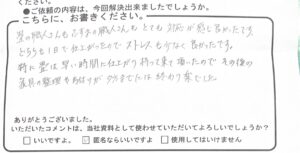 ください。
●ご依頼の内容は、今回解決出来ましたでしょうか。
こちらに、お書きください。
畳の職人さんも ふすまの職人さんも とても 対応が感じ良かったです。
どちらも1日で仕上がったので ストレスも少なく 良かったです。
特に畳は 早い時間に仕上がり 持って来て頂いたので その後の
家具の整理も 夕方までには 終わり 楽でした。
ありがとうございました。
いただいたコメントは、当社資料として使わせていただいてよろしいでしょうか？
□ いいですよ。 ☑ 匿名ならいいですよ □ 使用してはいけません